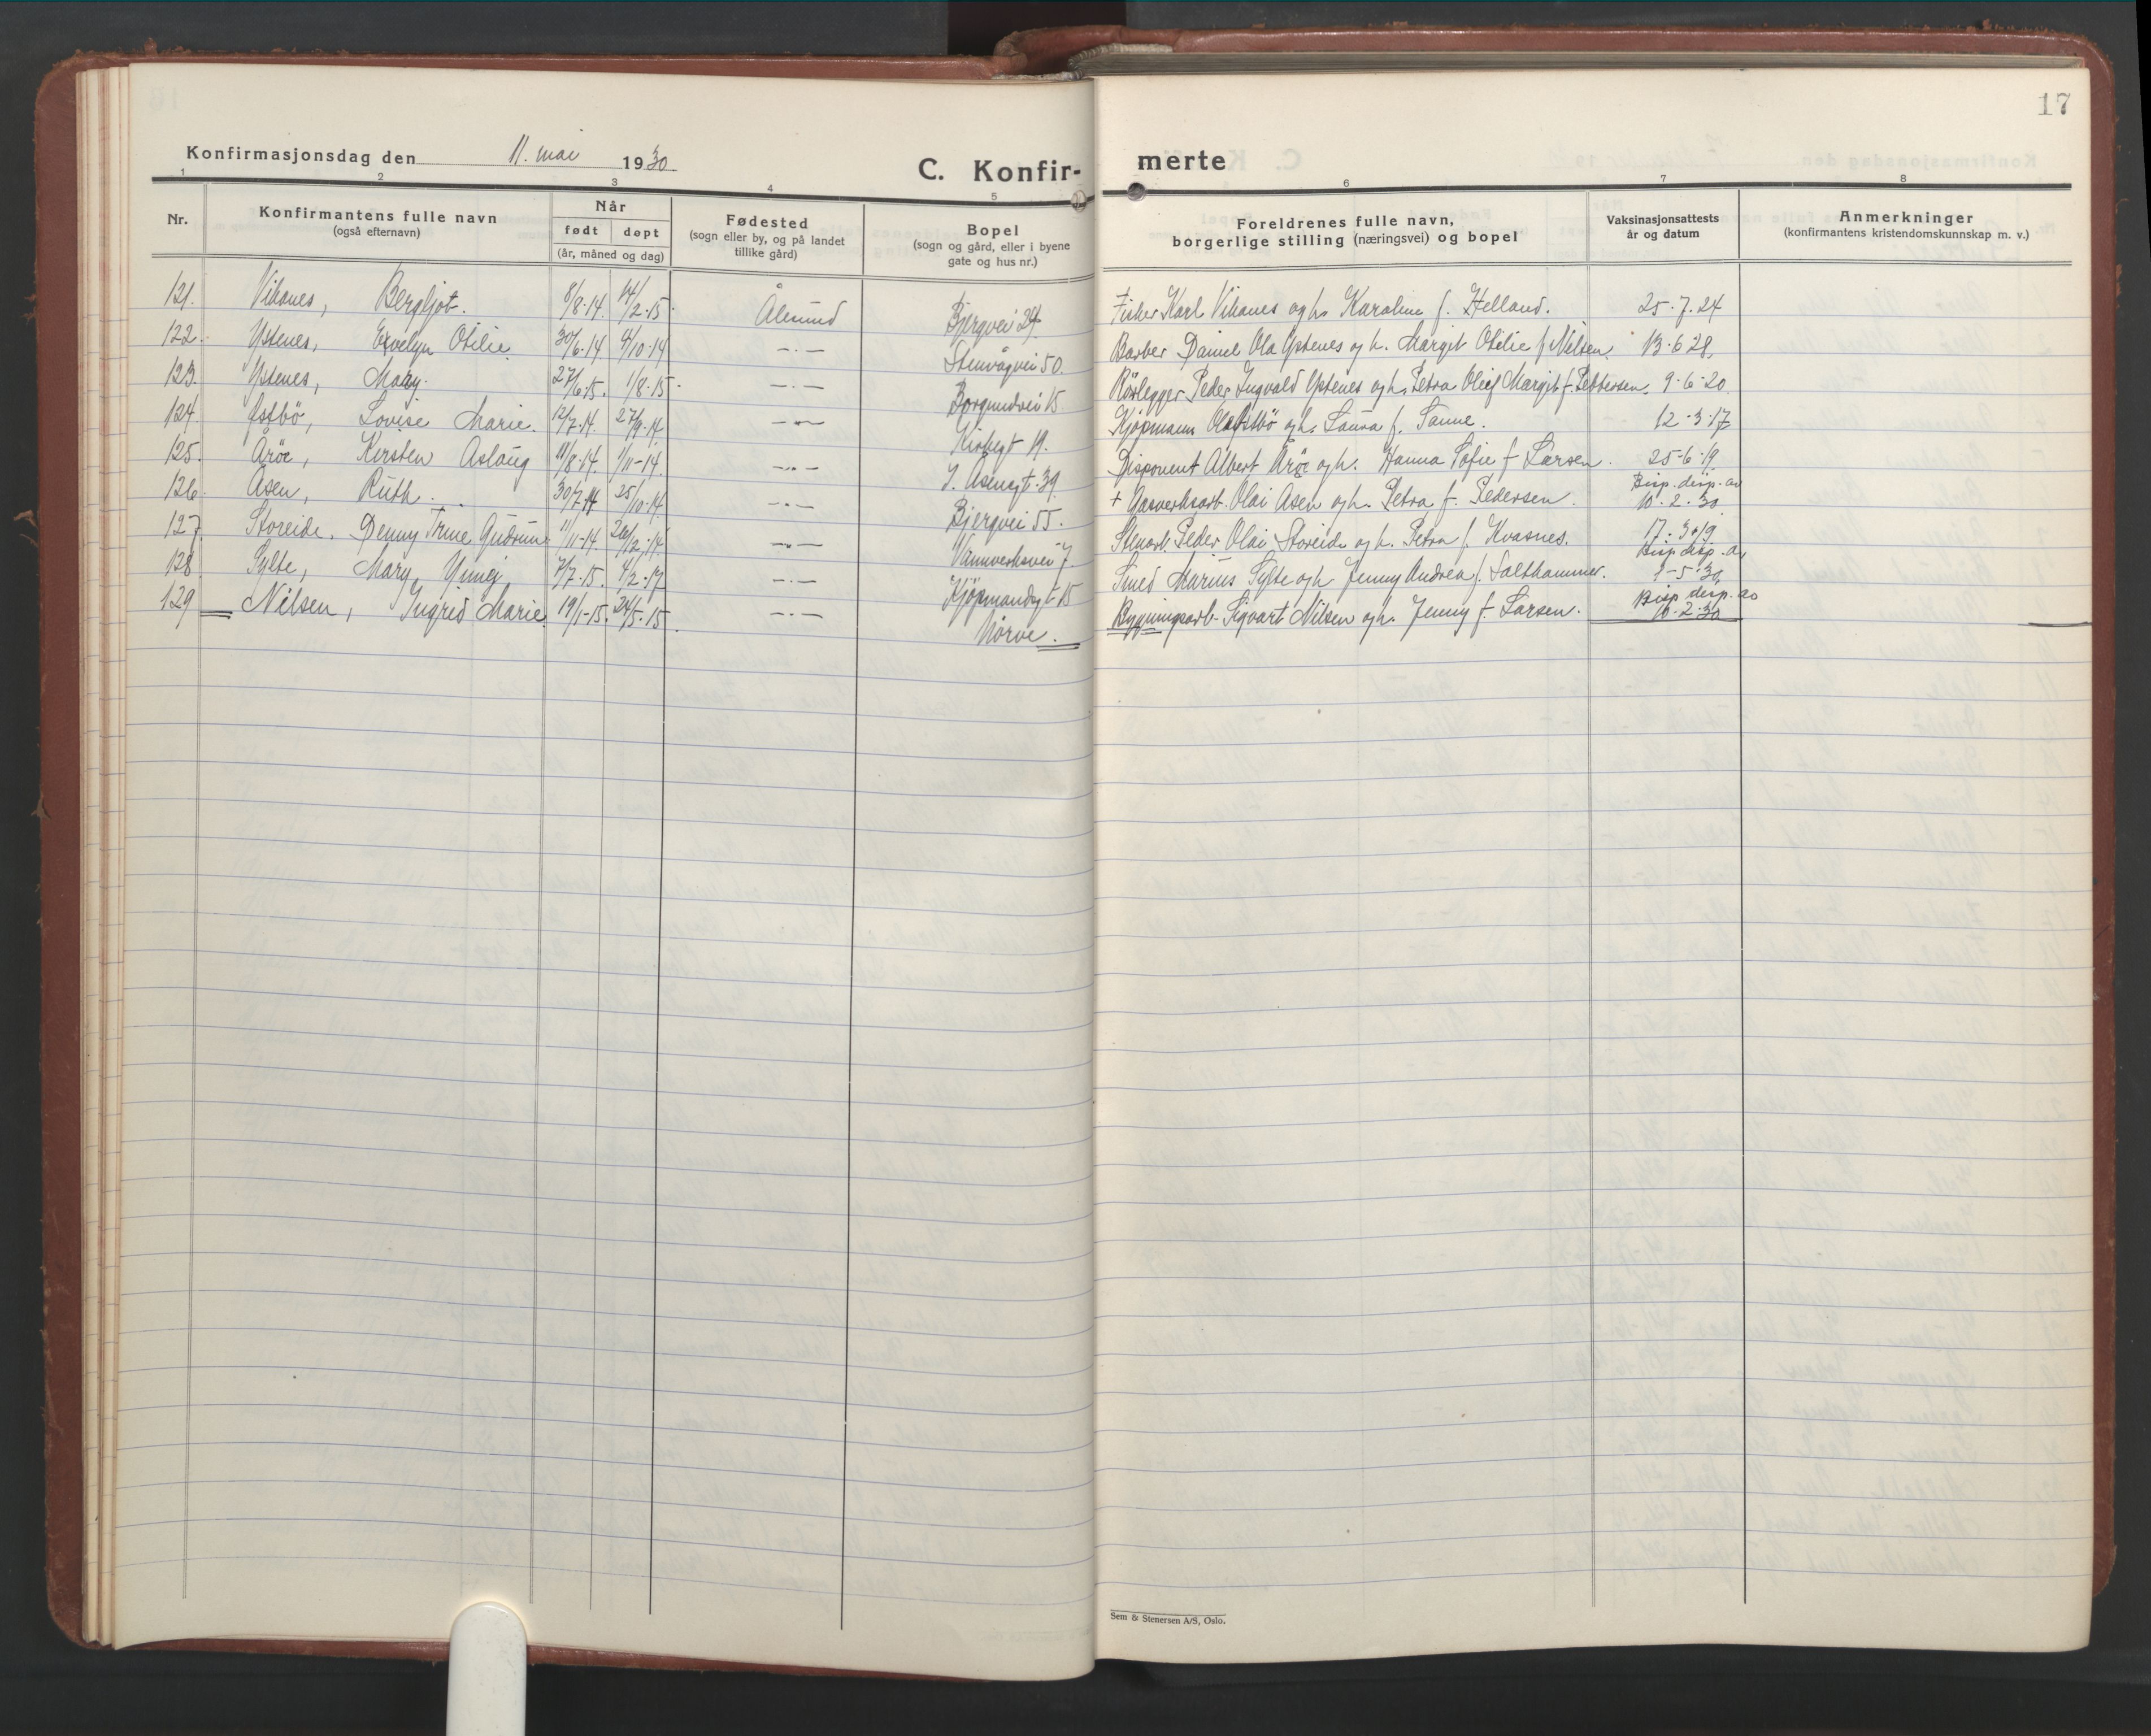 17
Konfirmasjonsdag den 11. mai 1930
C. Konfirmerte
1 2 3 4 5 6 7 8
Nr. Konfirmantens fulle navn (også efternavn) Når født døpt (år, måned og dag) Fødested (sogn eller by, og på landet tillike gård) Bopel (sogn og gård, eller i byene gate og hus nr.) Foreldrenes fulle navn, borgerlige stilling (næringsvei) og bopel Vaksinasjonsattests år og datum Anmerkninger (konfirmantens kristendomskunnskap m. v.)
121. Vikanes, Bergljot. 8/8-14. 14/2-15. Ålesund Bjergvei 24. Fisker Karl Vikanes og h. Karoline f. Helland. 25-7-24
122. Ystenes, Evelyn Otilie. 30/6-14 4/10-14 —·— Stenvågvei 50. Barber Daniel Ola Ystenes og h. Margit Otilie f. Nilsen. 13-6-28.
123. Ystenes, Mary. 27/6-15. 1/8-15. —·— Borgundvei 15 Rørlegger Peder Ingvald Ystenes og h. Petra Oleif Margit f. Pettersen. 9-6-20
124. Østbö, Lovise Marie. 12/7-14. 27/9-14. —·— Kirkegt 19. Kjøpmann Ola Østbö og h. Laura f. Sanne. 12-3-17
125. Aröe, Kirsten Aslaug 11/8-14. 1/11-14. —·— J. Åsengt. 39. Disponent Albert Aröe og h. Hanna Sofie f. Larsen. 25-6-19
126. Åsen, Ruth. 30/7-14 25/10-14. —·— Bjergvei 55. + Gasverksarb. Olai Åsen og h. Petra f. Pedersen. Bisp. disp. av 10-2-30.
127. Storeide, Denny Trine Gudrun 11/11-14. 26/12-14. —·— Vannverksvei 7. Stenarb. Peder Olai Storeide og h. Petra f. Kvasnes. 17-3-19.
128. Sylte, Mary, 7/7-15. 4/2-17 —·— Kjøpmandsgt 15 Smed Marius Sylte og h. Jenny Andrea f. Salthammer. Bisp. disp. av -5-30.
129 Nilsen, Ingrid Marie. 19/1-15. 24/5-15. —·— Nørve. Bygningsarb. Sigvart Nilsen og h. Jenny f. Larsen. Bisp. disp. av 10-2-30
Sem & Stenersen A/S, Oslo.